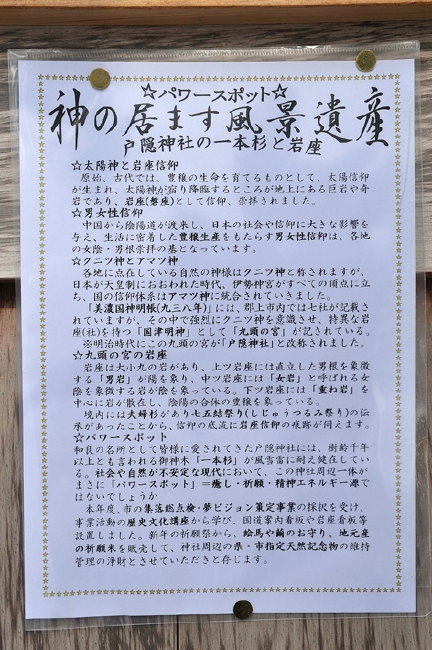 ☆パワースポット☆
神の居ます風景遺産
戸隠神社の一本杉と岩座
☆太陽神と岩座信仰
原始、古代では、豊穣の生命を育てるものとして、太陽信仰
が生まれ、太陽神が宿り降臨するところが地上にある巨岩や奇
岩であり、岩座(磐座)として信仰、崇拝されました。
☆男女性信仰
中国から陰陽道が渡来し、日本の社会や信仰に大きな影響を
与え、生活に密着した豊穣生産をもたらす男女性信仰は、各地
の女陰・男根崇拝の基となっています。
☆クニツ神とアマツ神
各地に点在している自然の神様はクニツ神と称されますが、
日本が天皇制におおわれた時代、伊勢神宮がすべての頂点に立
ち、国の信仰体系はアマツ神に統合されていきました。
「美濃国神明帳(九三八年)」には、郡上市内では七社が記載さ
れていますが、その中で強烈にクニツ神を意識させ、特異な岩
座(社)を持つ「国津明神」として「九頭の宮」が記されている。
※明治時代にこの九頭の宮が「戸隠神社」と改称されました。
☆九頭の宮の岩座
岩座は大小九の岩があり、上ツ岩座には直立した男根を象徴
する「男岩」が陽を象り、中ツ岩座には「女岩」と呼ばれる女
陰を象徴する岩が陰を象っている。下ツ岩座には「重ね岩」を
中心に岩が散在し、陰陽の合体の豊穣を象っている。
境内には夫婦杉があり七五結祭り(しじゅうつるみ祭り)の伝
承があったことから、信仰の底流に岩座信仰の痕跡が伺えます。
☆パワースポット
和良の名所として皆様に愛されてきた戸隠神社には、樹齢千年
以上とも言われる御神木「一本杉」が風雪雷に耐え健在してい
る。社会や自然が不安定な現代において、この神社周辺一体が
まさに「パワースポット」=癒し・祈願・精神エネルギー源で
はないでしょうか
本年度、市の集落総点検・夢ビジョン策定事業の採択を受け、
事業活動の歴史文化講座から学び、国道案内看板や岩座看板等
設置しました。新年の祈願祭から、絵馬や繭のお守り、地元産
の祈願米を販売して、神社周辺の県・市指定天然記念物の維持
管理の浄財とさせていただきと存じます。